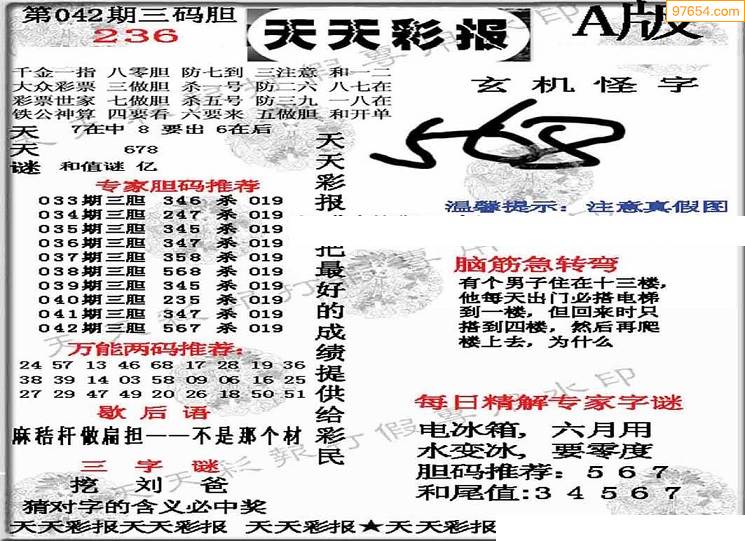 第042期三码胆
236
天天彩报
A版
97654.com
千金一指 八零胆 防七到 三注意 和一二
大众彩票 三做胆 杀一号 防二六 八七在
彩票世家 七做胆 杀五号 防三九 一八在
铁公神算 四要看 六要来 五做胆 和开单
天 7在中 8 要出 6在后
天 678
谜 和值谜 亿
玄机怪字
568
温馨提示: 注意真假图
专家胆码推荐
033期三胆 346 杀 019
034期三胆 247 杀 019
035期三胆 345 杀 019
036期三胆 347 杀 019
037期三胆 358 杀 019
038期三胆 568 杀 019
039期三胆 345 杀 019
040期三胆 235 杀 019
041期三胆 347 杀 019
042期三胆 567 杀 019
万能两码推荐:
24 57 13 46 68 17 28 19 36
38 39 14 03 58 09 06 16 25
27 29 47 49 20 26 18 50 51
歇后语
麻秸杆做扁担——不是那个材
三字谜
挖刘爸
猜对字的含义必中奖
天天彩报
把最好的成绩提供给彩民
脑筋急转弯
有个男子住在十三楼,
他每天出门必搭电梯
到一楼,但回来时只
搭到四楼,然后再爬
楼上去,为什么
每日精解专家字谜
电冰箱,六月用
水变冰,要零度
胆码推荐:567
和尾值:34567
天天彩报天天彩报 天天彩报★天天彩报